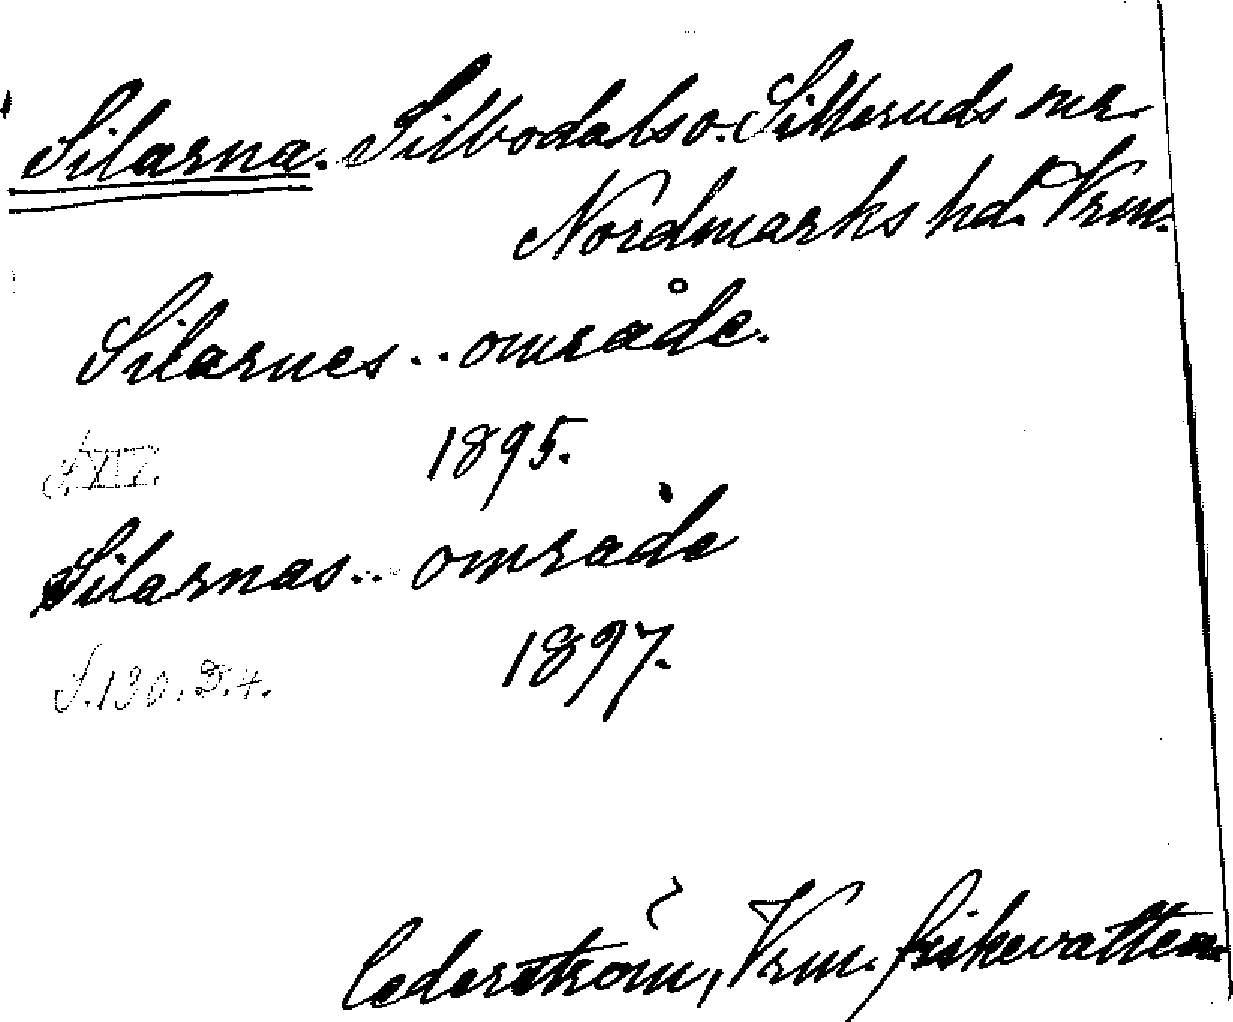 Silarna. Silbodals o. Silleruds snr
Nordmarks hd. Vrm.
Silarnes .. område.
1895.
S. XIV.
Silarnas .. område
1897.
S. 130. D. 4.
Cederström, Vrm. fiskevatten